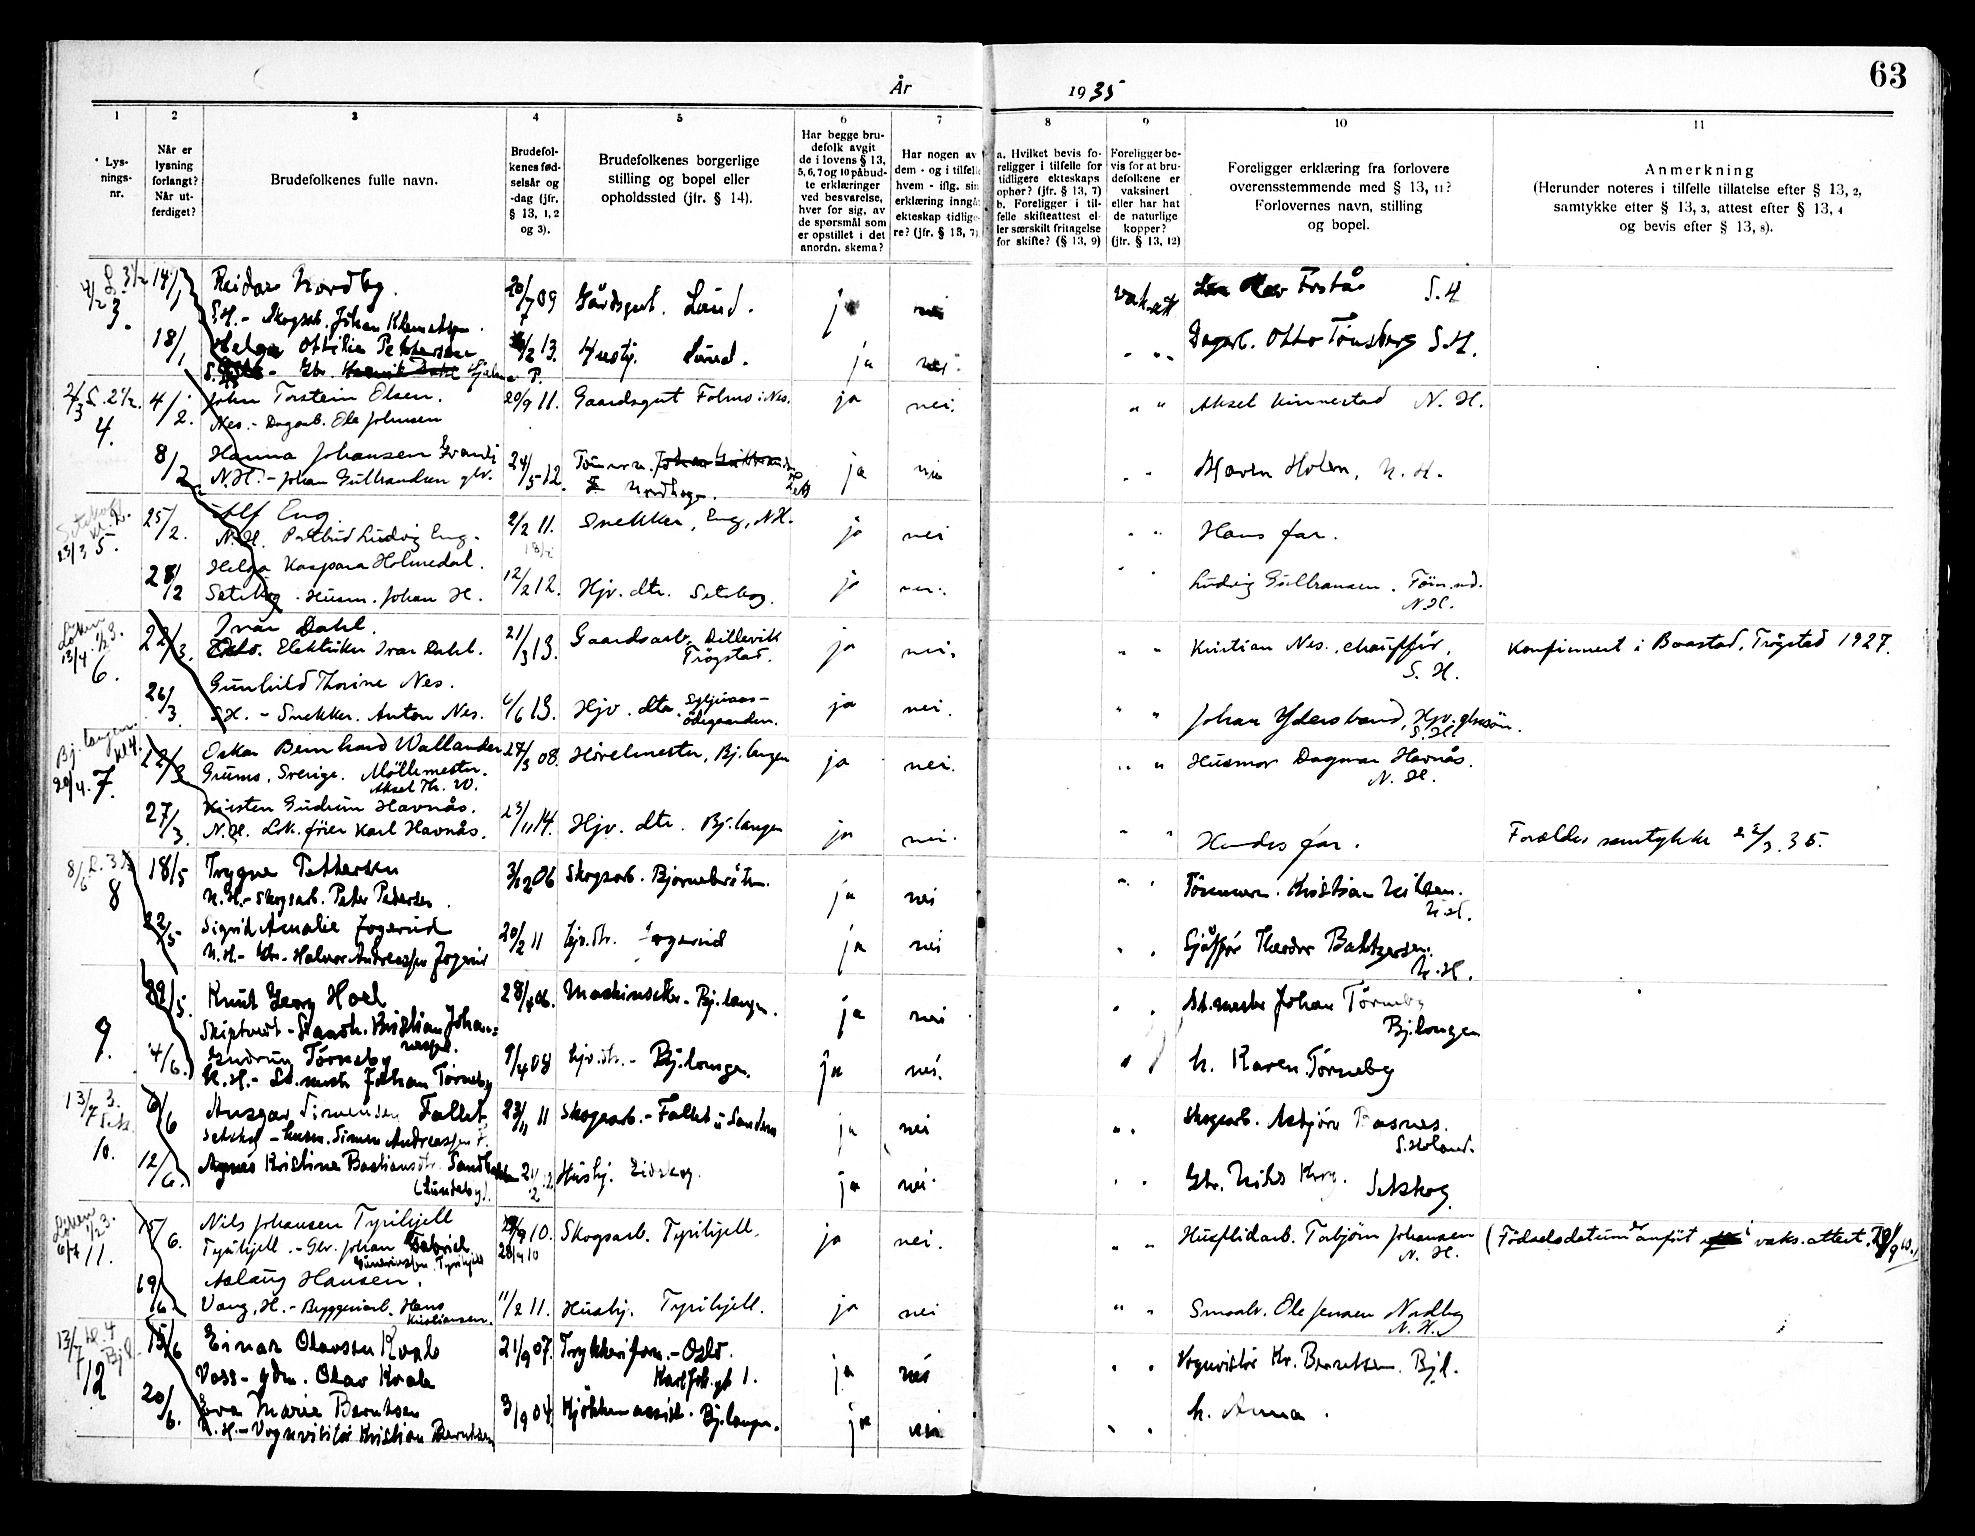 63
År 1935
1 2 3 4 5 6 7 8 9 10 11
Lys-
nings-
nr.
Når er
lysning
forlangt?
Når ut-
ferdiget?
Brudefolkenes fulle navn.
Brudefol-
kenes fød-
selsår og
-dag (jfr.
§ 13, 1, 2
og 3).
Brudefolkenes borgerlige
stilling og bopel eller
opholdssted (jfr. § 14).
Har begge bru-
defolk avgit
de i lovens § 13,
5, 6, 7 og 10 påbud-
te erklæringer
ved besvarelse,
hver for sig, av
de spørsmål som
er opstillet i det
anordn. skema?
Har nogen av
dem - og i tilfelle
hvem - iflg. sin
erklæring inngå
ekteskap tidlige-
re? (jfr. § 13, 7)
a. Hvilket bevis fo-
religger i tilfelle for
tidligere ekteskaps
ophør? (jfr. § 13, 7)
b. Foreligger i til-
felle skifteattest el-
ler særskilt fritagelse
for skifte? (§ 13, 9)
Foreligger be-
vis for at bru-
defolkene er
vaksinert
eller har hat
de naturlige
kopper?
(jfr. § 13, 12)
Foreligger erklæring fra forlovere
overensstemmende med § 13, 11?
Forlovernes navn, stilling
og bopel.
Anmerkning
(Herunder noteres i tilfelle tillatelse efter § 13, 2,
samtykke efter § 13, 3, attest efter § 13, 4
og bevis efter § 13, 8).
3. 14/1 Reidar Nordby. 20/7 09 Gårdsgut. Lund. ja nei vak.att Frstås S.H
S.H. - Skogsarb. Johan Klemetsen.
18/1 Helga Ottilie Pettersen 13. Hushj. Lund. ja nei. " " Dagarb. Otto Tønsberg S.H.
4. 4/2. John Torstein Olsen. 20/9 11. Gaardsgut Folmo i Nes. ja nei. " " Aksel Kinnestad N.H.
Nes. - Dagarb. Ole Johnsen
8/2 Hanna Johansen 24/5 12. Tømm. Nordhagen. ja nei " Maren Holen, N.H.
N.H. - Johan Gulbrandsen
13/3 5. 25/2. Alf Eng 2/2 11. Snekker, Eng, N.H. ja nei " " Hans far.
N.H. Postbud Ludvig Eng.
28/2 Helga Kaspara Holmedal. 12/2 12. Hjv. dtr. Setskog. ja nei. " " Ludvig Gulbransen. Tøm.md.
N.H.
Setskog. Husm. Johan H.
Løken 1/2 3.
13/4. 6. 22/3. Ivar Dahl. 21/3 13. Gaardsarb. Dillevik ja nei. " " Kristian Nes, chauffør, Konfirmert i Baastad, Trøgstad 1927.
Oslo. Elektriker Ivar Dahl. Trögstad. S.H.
26/3. Gunhild Thorine Nes. 6/6 13. Hjv. dtr. ja nei. " " Johan Ydersbond,
S.H. - Snekker. Anton Nes. S.H.
Bj.langen. kl 4.
20/4. 7. 22/3 Oskar Bernhard Wallander 27/3 08. Hövelmester, Bj.langen ja nei. " " Husmor Dagmar Havnås.
Grums, Sverige. Möllemester. N.H.
Aksel Th. W.
27/3. Kirsten Gudrun Havnås. 23/11 14. Hjv. dtr. Bj.langen ja nei. " " Hendes far. Forældres samtykke 22/3. 35.
N.H. Lok.fører Karl Havnås.
8/6 8 18/5 Trygve Pettersen 3/12 06 Skogsarb. Bjørnebråten. ja nei " " Tömmerm. Kristian Nilsen.
N.H. - Skogsarb. Peter Petersen. N.H.
22/5 Sigrid Amalie Jogerud 20/2 11 hjv.dtr. Jogerud ja nei " " Sjåffør Theodor Baltzersen.
N.H. - Gbr. Halvor Andreassen Jogerud N.H.
9. 29/5. Knut Georg Hoel 28/4 06. Maskinsetter - Bj.langen. ja nei " " St.mester Johan Tørneby
Skiptvedt - Kristian Johan=
nessen. Bj.langen
4/6. Gudrun Tørneby 9/4 08 hjv.dtr. - Bj.langen. ja nei. " h. Karen Tørneby
N.H. - St.mestr Johan Tørneby
13/7 10. 6/6 Ansgar Simensen Fallet 23/11 11 Skogsarb. - Fallet u Sanden ja nei " " Skogsarb. Asbjørn Basnes.
S.Høland.
Setskog - husm. Simen Andreassen F.
12/6. Agnes Kristine Bastiansdtr. (Lundeby). Hushj. Eidskog. ja nei " " Gbr. Nils Krog. Setskog
Løken 1/2 3.
11. 15/6. Nils Johansen Tyrihjell 10. Skogsarb. Tyrihjell. ja nei. " " Husflidarb. Torbjørn Johansen (Fødselsdatum er anført i vaks.attest.
Tyrihjell. - Gbr. Johan Gabriel 28/9 10 N.H.
19/6 Aslaug Hansen. 11/2 11. Hushj. Tyrihjell. ja nei " " Smaabr. Ole Jensen Nordby
N.H.
Vang, H. - Bryggeriarb. Hans
Kristiansen.
13/7 kl. 4 Bjl.
12 15/6 Einar Olavsen Kvale 21/9 07. Trykkeriform. - Oslo. ja nei " " Vognvisitør Kr. Berntsen. Bjl.
Voss - gdm. Olav Kvale Karl Joh. gt 1.
20/6. Eva Marie Berntsen 3/9 04. Kjøkkenassist. Bj.langen. ja nei " " h. Anna.
N.H. - Vognvisitør Kristian Berntsen